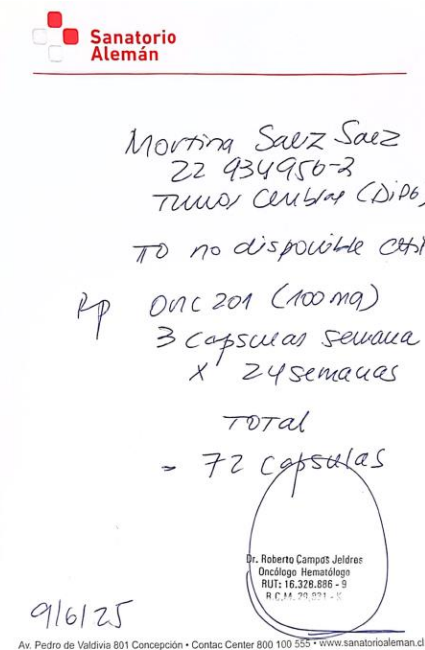 Sanatorio
Alemán
Martina Saez Saez
22 934956-2
Tumor Cerebral (DIPG)
TO no disponible
Rp ONC 201 (100 mg)
3 capsulas semana
x 24 semanas
TOTAL
= 72 capsulas
Dr. Roberto Campos Jeldres
Oncólogo Hematólogo
RUT: 16.328.886 - 9
R.C.M. 29,021 - K
9/6/25
Av. Pedro de Valdivia 801 Concepción • Contac Center 800 100 555 • www.sanatorioaleman.cl